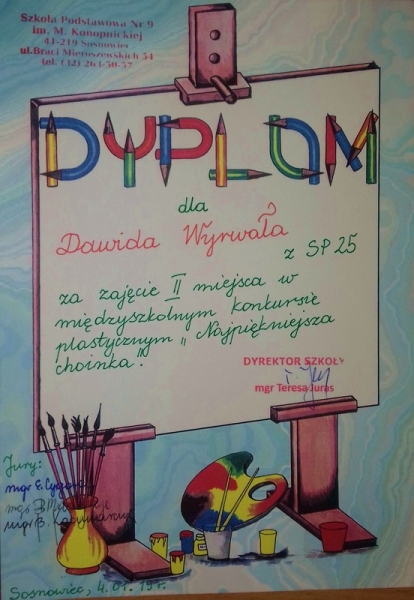 Szkoła Podstawowa Nr 9
im. M. Konopnickiej
41-219 Sosnowiec
ul. Braci Mieroszewskich 54
tel. (32) 263-50-57
DYPLOM
dla
Dawida Wyrwała
z SP 25
za zajęcie II miejsca w
międzyszkolnym konkursie
plastycznym „Najpiękniejsza
choinka".
DYREKTOR SZKOŁY
mgr Teresa Juras
Jury:
mgr E.
mgr
mgr B.
Sosnowiec, 4.01.19r.